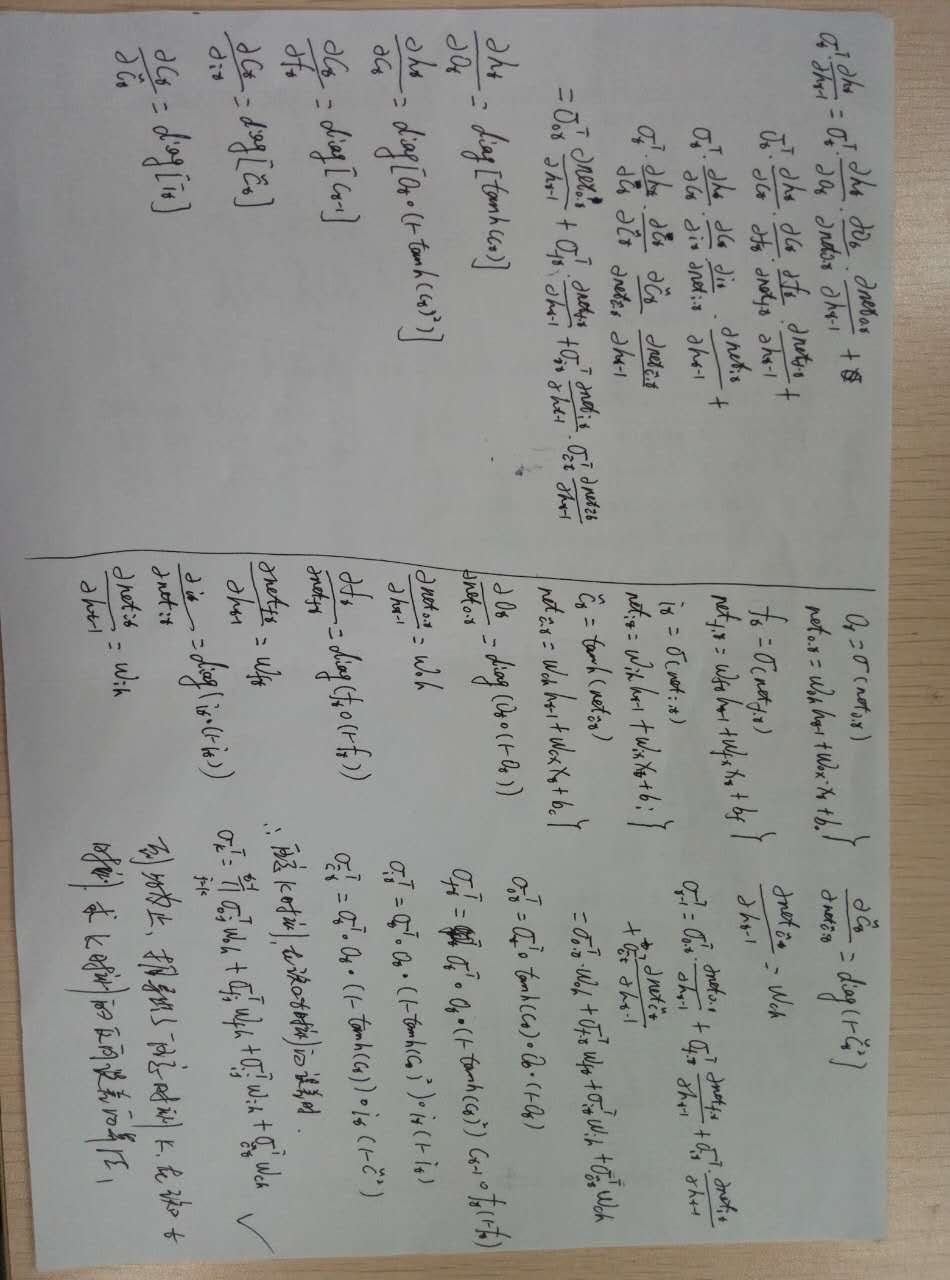 σₜᵀ ∂hₜ/∂hₜ₋₁ = σₜᵀ · ∂hₜ/∂Oₜ · ∂Oₜ/∂net₀.ₜ · ∂net₀.ₜ/∂hₜ₋₁ +
σₜᵀ · ∂hₜ/∂Cₜ · ∂Cₜ/∂fₜ · ∂fₜ/∂net_f.ₜ · ∂net_f.ₜ/∂hₜ₋₁ +
σₜᵀ · ∂hₜ/∂Cₜ · ∂Cₜ/∂iₜ · ∂iₜ/∂net_i.ₜ · ∂net_i.ₜ/∂hₜ₋₁ +
σₜᵀ · ∂hₜ/∂Cₜ · ∂Cₜ/∂C̃ₜ ∂C̃ₜ/∂net_c̃.ₜ ∂net_c̃.ₜ/∂hₜ₋₁
= σ₀ₜᵀ ∂net₀.ₜ/∂hₜ₋₁ + σ_fₜᵀ · ∂net_fₜ/∂hₜ₋₁ + σ_iₜᵀ ∂net_iₜ/∂hₜ₋₁ · σ_c̃ₜᵀ ∂net_c̃ₜ/∂hₜ₋₁
∂hₜ/∂Oₜ = diag[tanh(cₜ)]
∂hₜ/∂Cₜ = diag[Oₜ∘(1-tanh(cₜ)²)]
∂Cₜ/∂fₜ = diag[Cₜ₋₁]
∂Cₜ/∂iₜ = diag[C̃ₜ]
∂Cₜ/∂C̃ₜ = diag[iₜ]
Oₜ = σ(net₀.ₜ)
net₀.ₜ = W₀h hₜ₋₁ + W₀x·xₜ + b₀
fₜ = σ(net_f.ₜ)
net_f.ₜ = W_fₜ hₜ₋₁ + W_fx xₜ + b_f
iₜ = σ(net_i.ₜ)
net_iₜ = W_ih hₜ₋₁ + W_ix xₜ + b_i
C̃ₜ = tanh(net_c̃ₜ)
net_c̃.ₜ = W_ch hₜ₋₁ + W_cx xₜ + b_c
∂Oₜ/∂net₀.ₜ = diag(Oₜ∘(1-Oₜ))
∂net₀.ₜ/∂hₜ₋₁ = W₀h
∂fₜ/∂net_fₜ = diag(fₜ∘(1-fₜ))
∂net_fₜ/∂hₜ₋₁ = W_fₜ
∂iₜ/∂net_iₜ = diag(iₜ∘(1-iₜ))
∂net_iₜ/∂hₜ₋₁ = W_ih
∂C̃ₜ/∂net_c̃.ₜ = diag(1-C̃ₜ²]
∂net_c̃ₜ/∂hₜ₋₁ = W_ch
σₜ₋₁ᵀ = σ₀.ₜᵀ · ∂net₀.ₜ/∂hₜ₋₁ + σ_f.ₜᵀ ∂net_f.ₜ/∂hₜ₋₁ + σ_iₜᵀ · ∂net_iₜ/∂hₜ₋₁
+ σ_c̃ₜᵀ ∂net_c̃ₜ/∂hₜ₋₁
= σ₀.ₜᵀ · W₀h + σ_f.ₜᵀ W_fₜ + σ_iₜᵀ W_ih + σ_c̃ₜᵀ W_ch
σ₀ₜᵀ = σₜᵀ∘tanh(cₜ)∘Oₜ∘(1-Oₜ)
σ_fₜᵀ = σₜᵀ∘Oₜ∘(1-tanh(cₜ)²) Cₜ₋₁∘fₜ(1-fₜ)
σ_iₜᵀ = σₜᵀ∘Oₜ∘(1-tanh(cₜ)²)∘iₜ(1-iₜ)
σ_c̃ₜᵀ = σₜᵀ∘Oₜ∘(1-tanh(cₜ))∘iₜ(1-c̃²)
∴ 任意 K时刻, 在该t时刻的误差时.
σ_kᵀ = ∏_{j=k}^{t-1} σ₀ⱼᵀ W₀h + σ_fⱼᵀ W_fh + σ_iⱼᵀ W_ih + σ_c̃ₜᵀ W_ch ✓
到此为止, 推导出了任意时刻K. 在 t
时刻. 求K时刻的反向误差的算法,